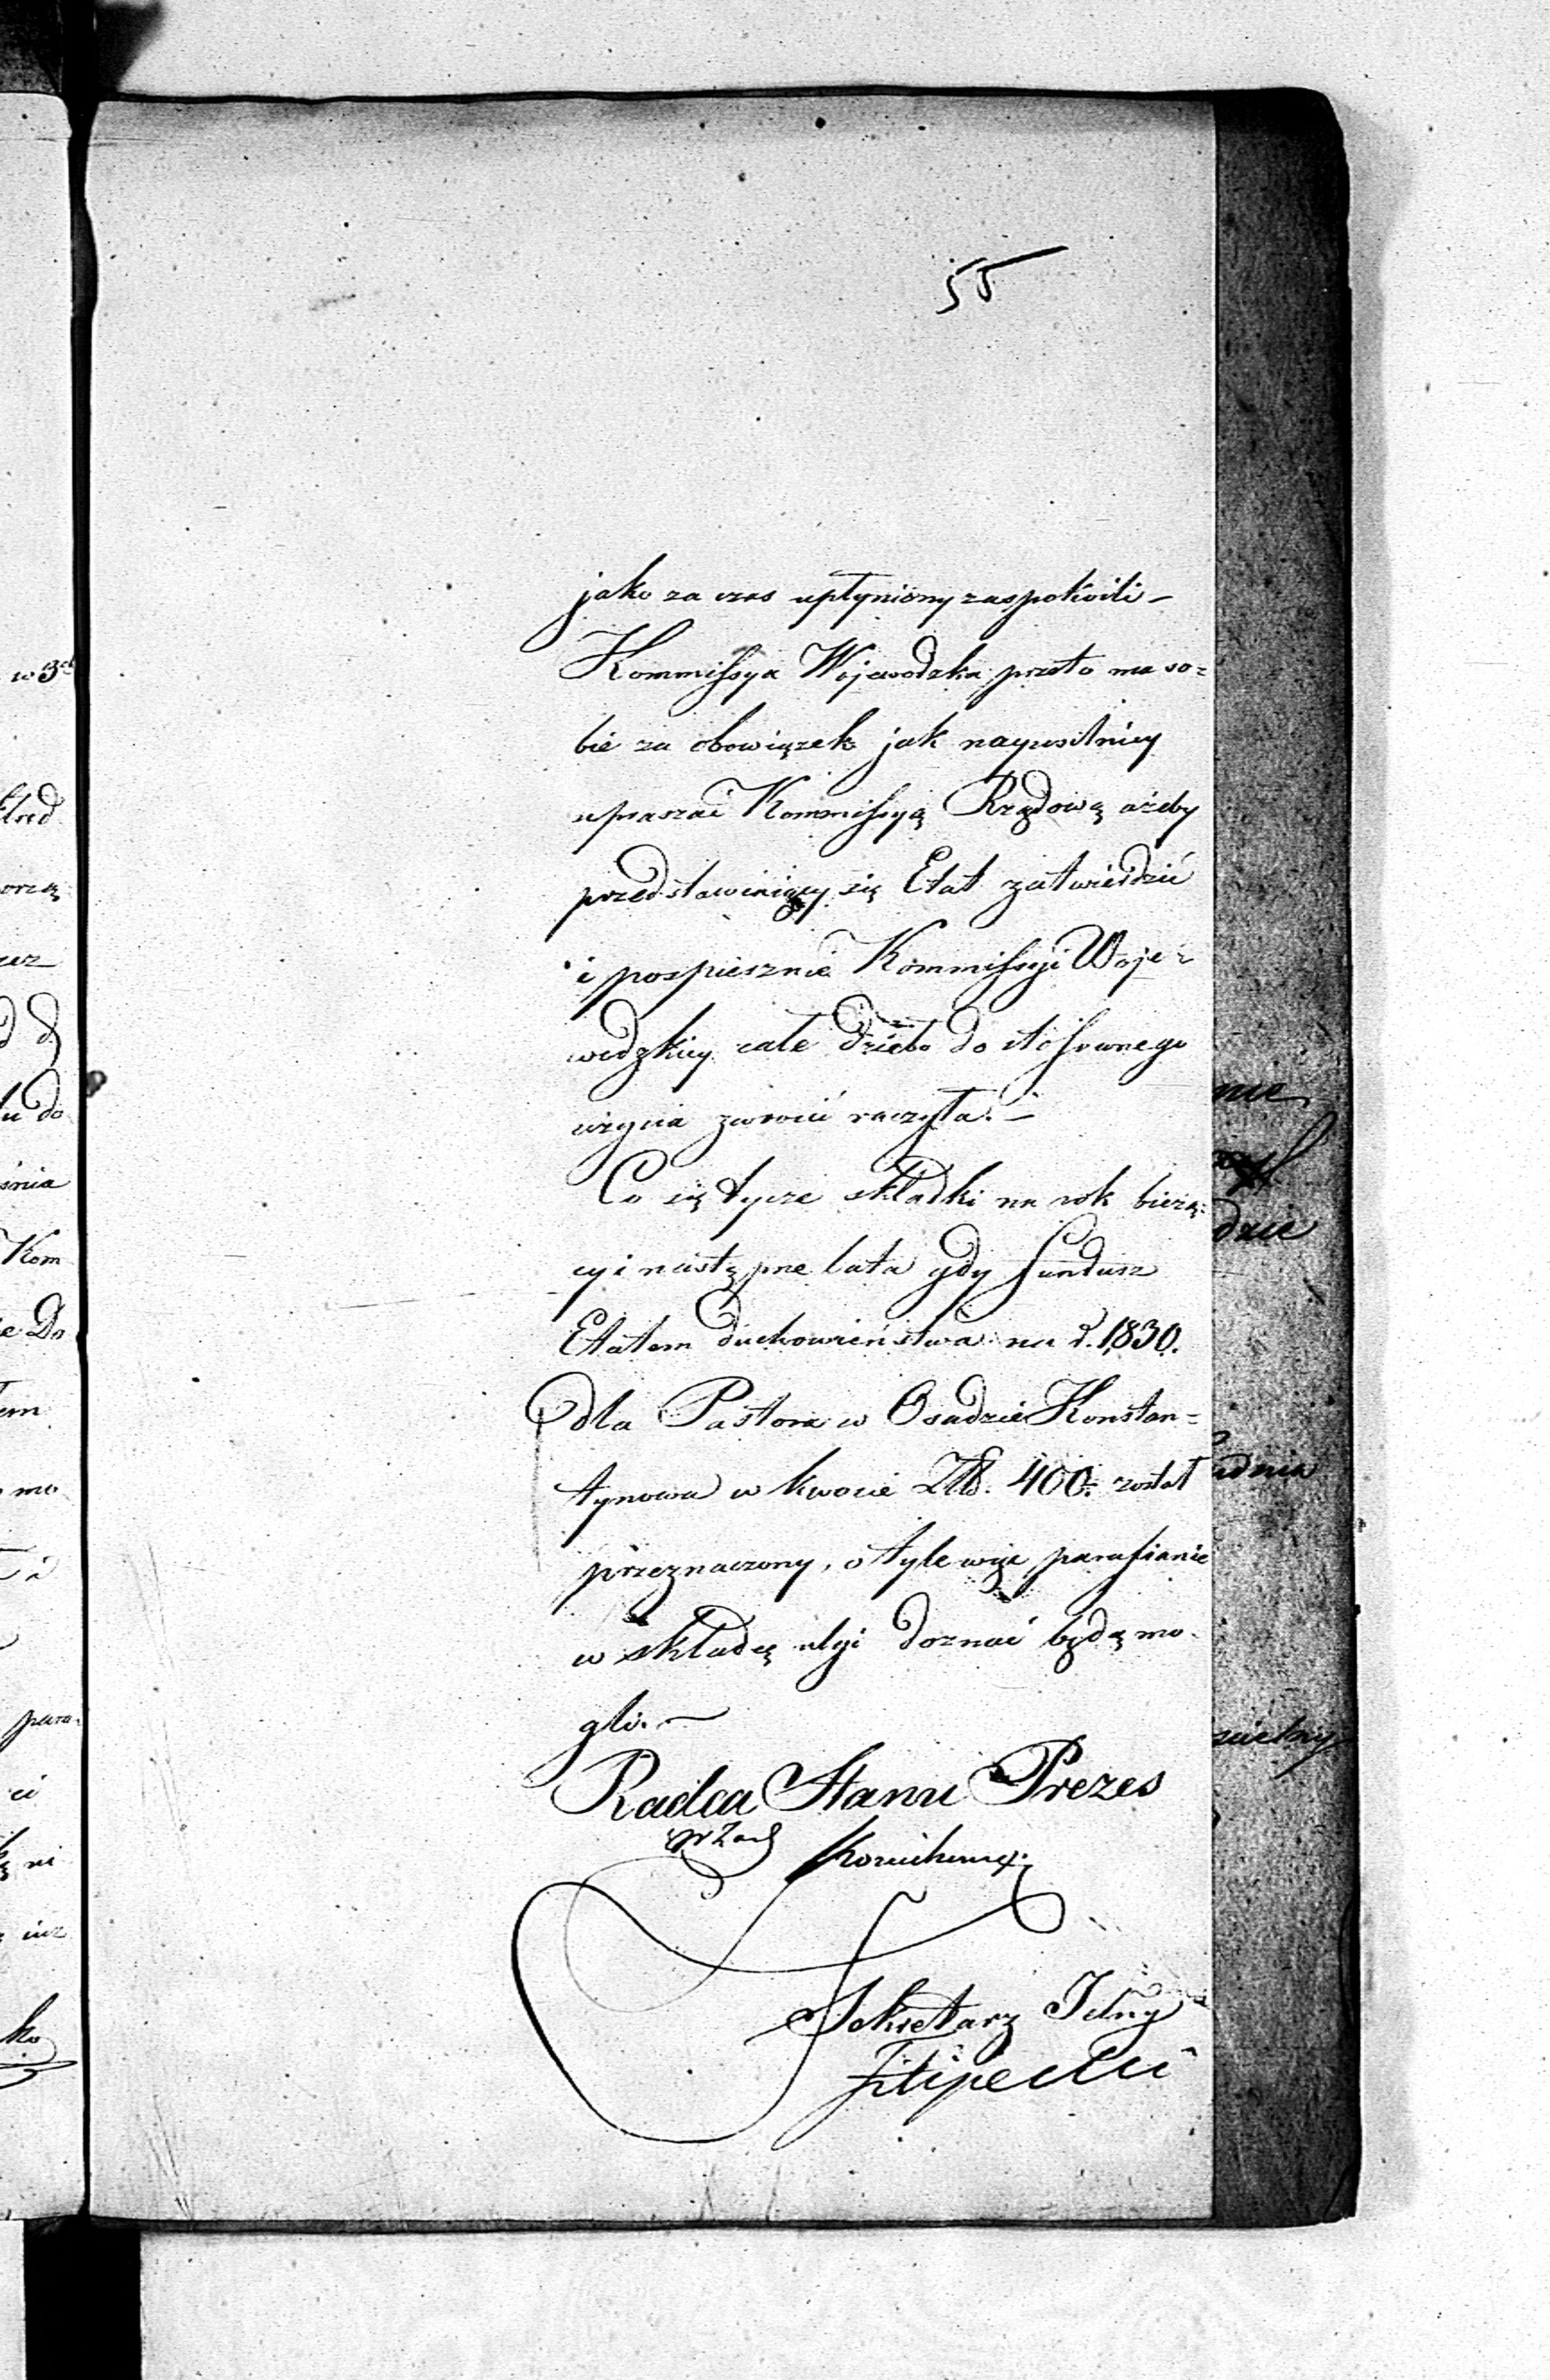 55
jako za czas upłyniony zaspokoili –
Kommissya Wojewodzka przeto ma so=
bie za obowiązek jak nayusilniey
upraszać Kommissyą Rządową ażeby
przedstawiaiący się Etat zatwierdzić
i pospiesznie Kommissyi Woje=
wodzkiey całe dzieło do stosownego
użycia zwrócić raczyła. –
Co się tycze składki na rok bieżą=
cy i następne lata gdy fundusz
Etatem duchowieństwa na r. 1830.
dla Pastora w Osadzie Konstan=
tynowa w kwocie Złt. 400. został
przeznaczony, o tyle więc parafianie
w składcę ulgi doznać będą mo-
gli. –
Radca Stanu Prezes
w Zas
Sekretarz Jlny
Filipecki